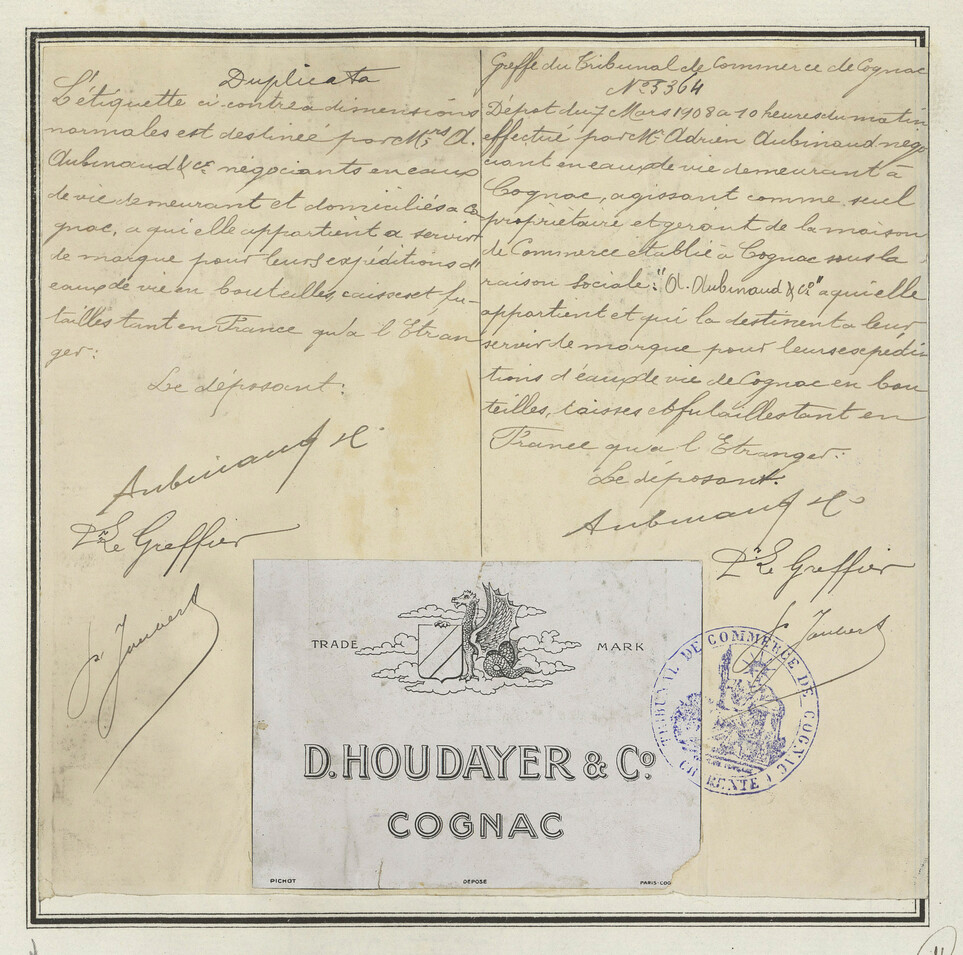 Duplicata
L'étiquette ci contre a dimensions
normales est destinée par Mrs A.
Aubinaud & Cie négociants en eaux
de vie demeurant et domiciliés a Co
gnac, a qui elle appartient a servir
de marque pour leurs expéditions d'
eaux de vie en bouteilles, caisses et fu-
tailles tant en France qu'a l'Etran
ger:
Le déposant:
Aubinaud & Co
Le Greffier
Joubert
Greffe du Tribunal de Commerce de Cognac
No 5364
Dépot du 7 Mars 1908 a 10 heures du matin
effectué par Mr Adrien Aubinaud négo
ciant en eaux de vie demeurant à
Cognac, agissant comme seul
propriétaire et gérant de la maison
de Commerce établie à Cognac sous la
raison sociale: "A. Aubinaud & Co" a qui elle
appartient et qui la destinent a leur
servir de marque pour leurs expédi
tions d'eaux de vie de Cognac en bou
teilles, caisses et futailles tant en
France qu'a l'Etranger:
Le déposant:
Aubinaud & Co
Le Greffier
Joubert
TRADE MARK
D. HOUDAYER & Co
COGNAC
PICHOT DEPOSE PARIS-COG
TRIBUNAL DE COMMERCE DE COGNAC
CHARENTE